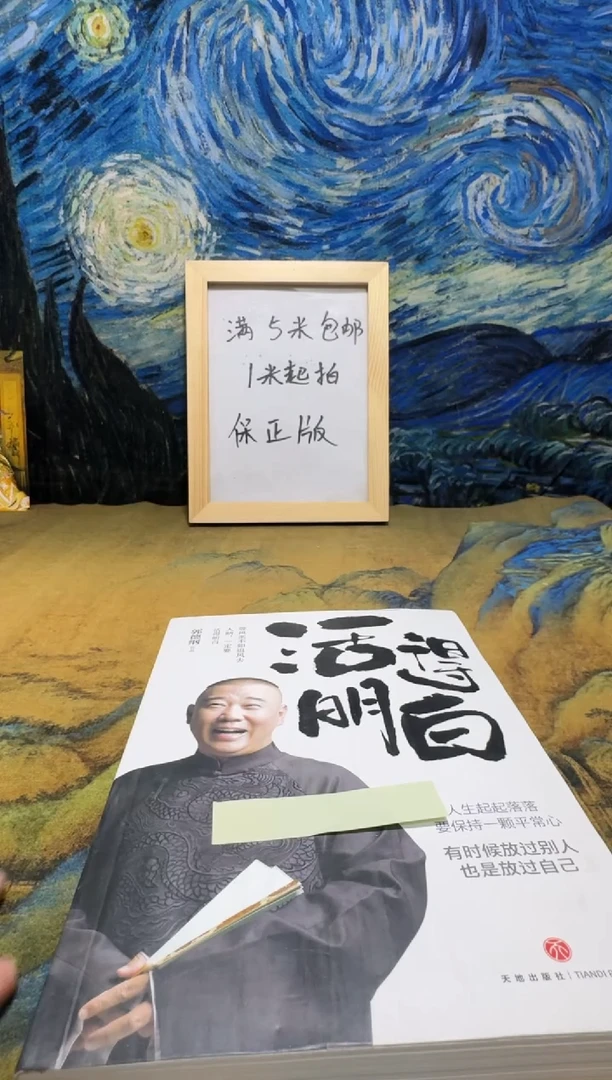 满5米包邮
1米起拍
保正版
活得
明白
郭德纲
人生起起落落
要保持一颗平常心
有时候放过别人
也是放过自己
天地出版社 | TIANDI P